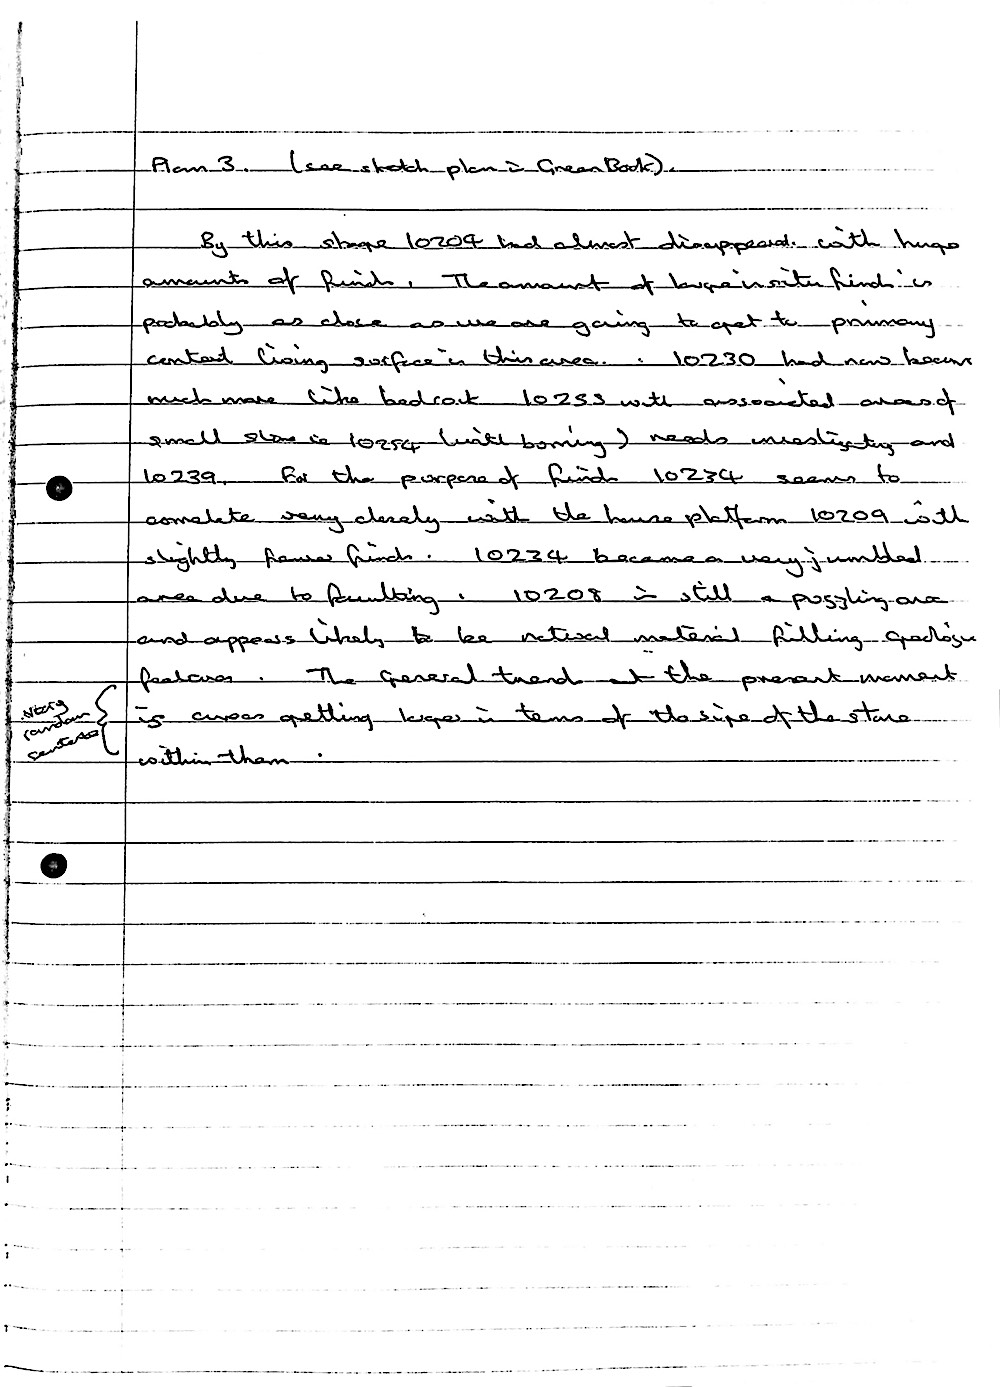 Plan 3. (see sketch plan in Green Book).
By this stage 10204 had almost disappeared. with huge
amounts of finds. The amount of large insitu finds is
probably as close as we are going to get to primary
context living surface in this area. . 10230 had now become
much more like bedrock 10253 with associated areas of
small stone ie 10254 (with boning) needs investigating and
10239. For the purpose of finds 10234 seems to
correlate very closely with the house platform 10209 with
slightly fewer finds. 10234 became a very jumbled
area due to faulting. 10208 is still a puzzling area
and appears likely to be natural material filling geologic
features. The general trend at the present moment
is areas getting larger in terms of the size of the stone
within them.
very
random
sentence